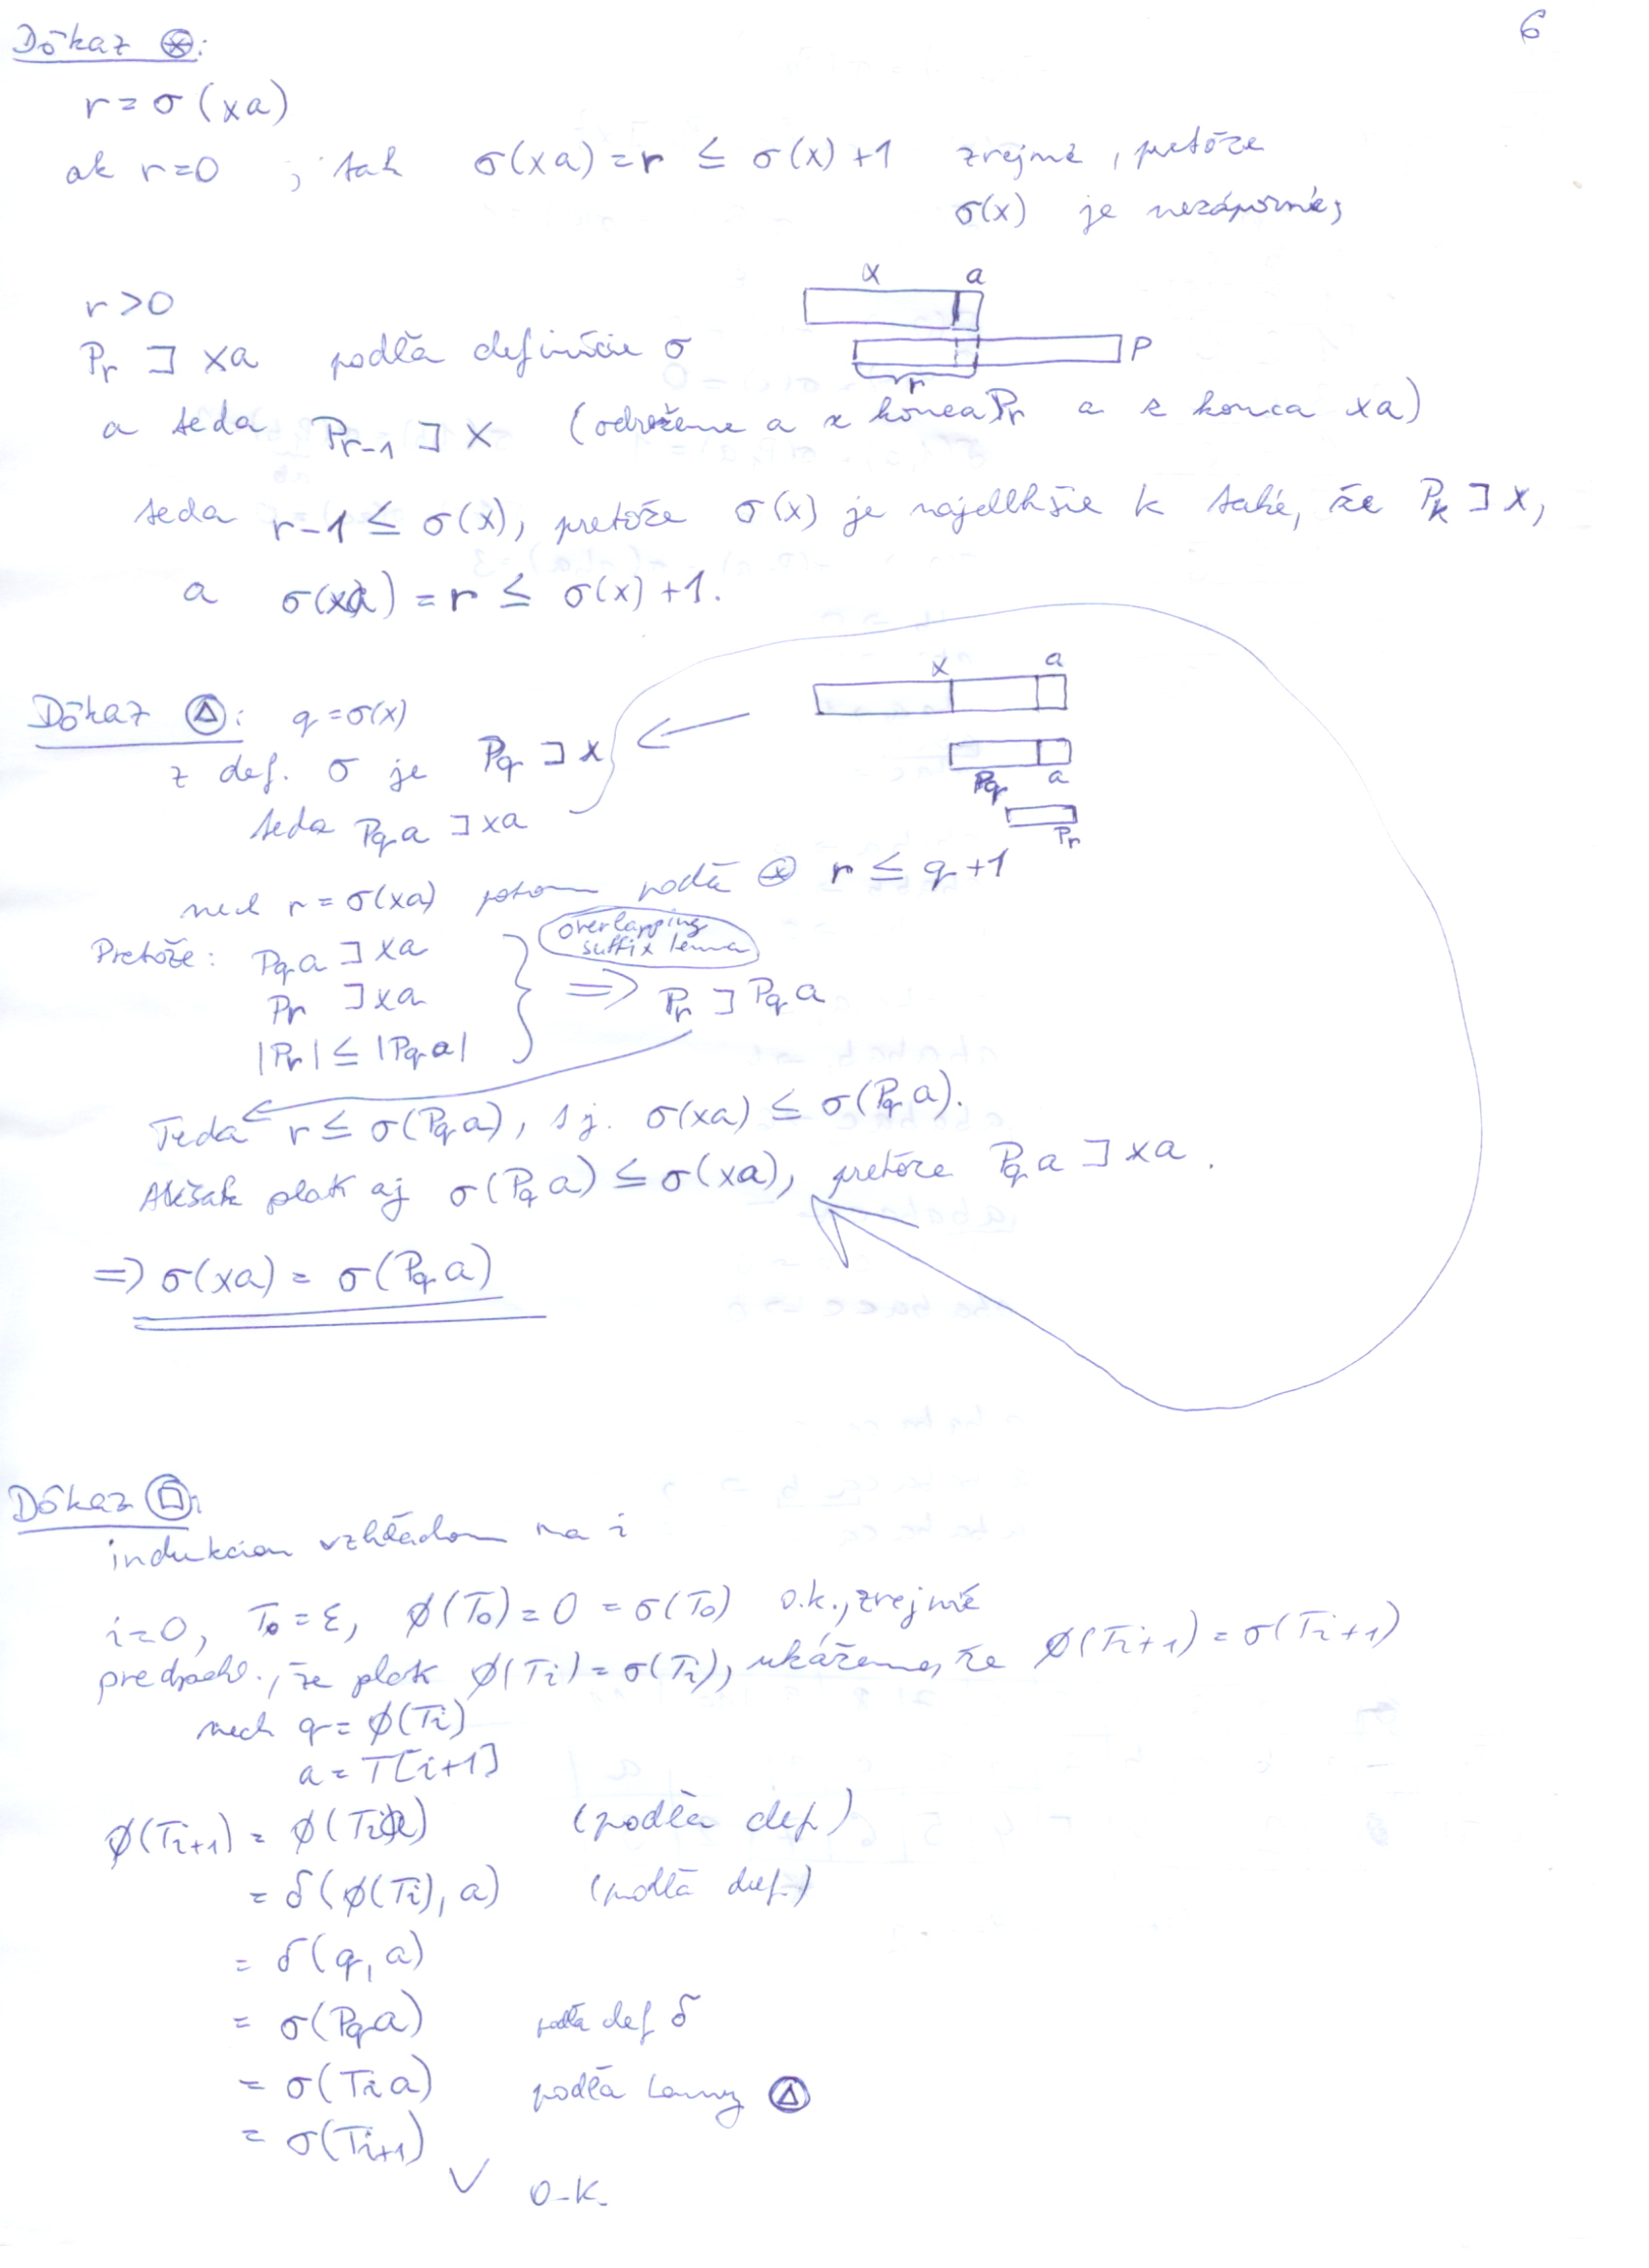 6
Dôkaz ⊛:
r = σ(xa)
ak r=0 ; tak σ(xa) = r ≤ σ(x)+1 zrejmé, pretože
σ(x) je nezáporné;
x a
r > 0
P
Pr ⊐ xa podľa definície σ
r
a teda Pr-1 ⊐ x (odrežeme a z konca Pr a z konca xa)
teda r-1 ≤ σ(x), pretože σ(x) je najdlhšie k také, že Pk ⊐ x,
a σ(xa) = r ≤ σ(x)+1.
x a
Dôkaz Ⓐ: q = σ(x)
z def. σ je Pq ⊐ x
Pq a
Pr
teda Pq a ⊐ xa
nech r = σ(xa) potom podľa ⊛ r ≤ q+1
overlapping
suffix lemma
Pretože: Pq a ⊐ xa
Pr ⊐ xa ⇒ Pr ⊐ Pq a
|Pr| ≤ |Pq a|
Teda r ≤ σ(Pq a), tj. σ(xa) ≤ σ(Pq a).
Avšak platí aj σ(Pq a) ≤ σ(xa), pretože Pq a ⊐ xa.
⇒ σ(xa) = σ(Pq a)
Dôkaz □:
indukciou vzhľadom na i
i=0, T0 = ε, ϕ(T0) = 0 = σ(T0) o.k., zrejmé
predpokl., že platí ϕ(Ti) = σ(Ti), ukážeme, že ϕ(Ti+1) = σ(Ti+1)
nech q = ϕ(Ti)
a = T[i+1]
ϕ(Ti+1) = ϕ(Ti a) (podľa def)
= δ(ϕ(Ti), a) (podľa def.)
= δ(q, a)
= σ(Pq a) podľa def δ
= σ(Ti a) podľa Lemy △
= σ(Ti+1)
✓ o.k.